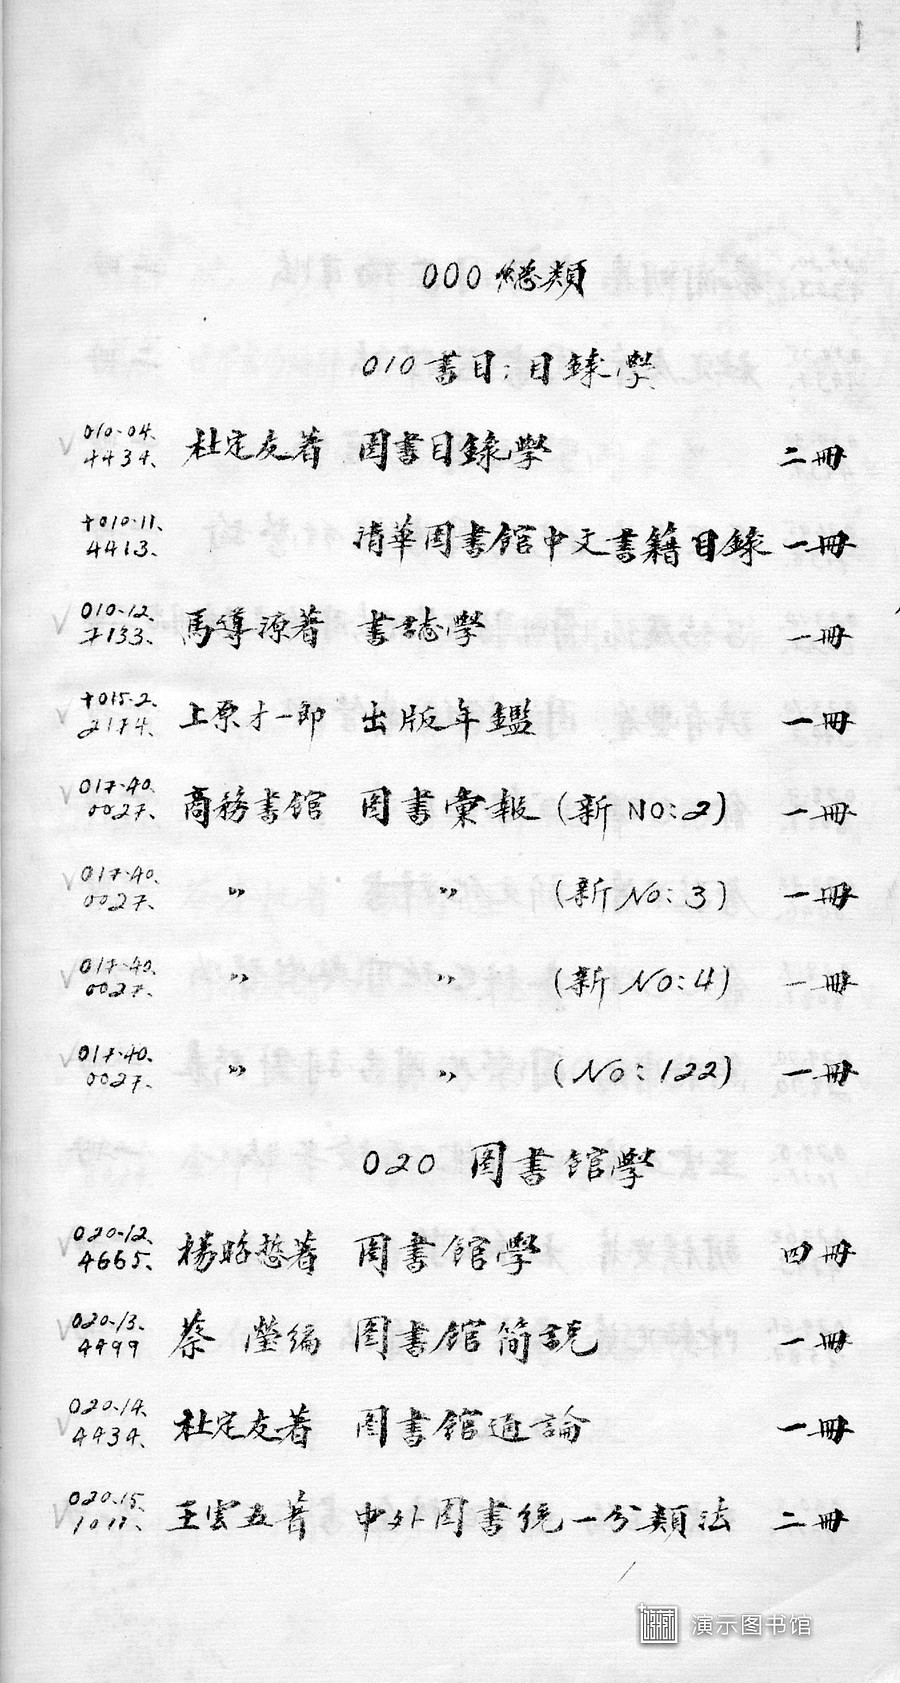 1
000 總類
010 書目；目錄學
√ 010-04. 4434. 杜定友著 圖書目錄學 二冊
+010-11. 4413. 清華圖書館中文書籍目錄 一冊
√ 010-12. 7133. 馬導源著 書誌學 一冊
√ +015-2. 2174. 上原才一郎 出版年鑑 一冊
√ 017-40. 0027. 商務書館 圖書彙報 (新NO:2) 一冊
√ 017-40. 0027. 〃 〃 (新No:3) 一冊
√ 017-40. 0027. 〃 〃 (新No:4) 一冊
√ 017-40. 0027. 〃 〃 (No:122) 一冊
020 圖書館學
√ 020-12. 4665. 楊昭悊著 圖書館學 四冊
√ 020-13. 4499 蔡瑩編 圖書館簡說 一冊
√ 020-14. 4434. 杜定友著 圖書館通論 一冊
√ 020-15. 1011. 王雲五著 中外圖書統一分類法 二冊
演示图书馆